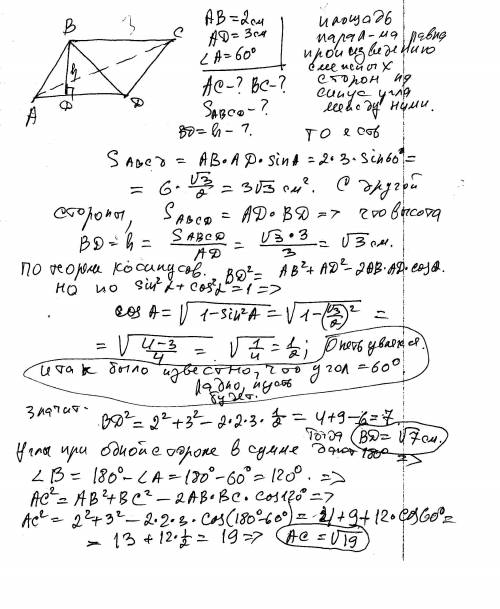 B 3 C
h
A Ф D
AB = 2см
AD = 3см
∠A = 60°
AC-? BC-?
S ABCD -?
BD = h - ?
площадь
парал-ма равна
произведению
смежных
сторон на
синус угла
между ними.
то есть
S ABCD = AB·AD·sinA = 2·3·sin60° =
= 6·√3/2 = 3√3 см². С другой
стороны, S ABCD = AD·BD => что высота
BD = h = S ABCD/AD = √3·3/3 = √3 см.
По теореме косинусов. BD² = AB²+AD²-2AB·AD·cosα.
но по sin²α+cos²α=1 =>
cosA = √1-sin²A = √1-(√3/2)² =
= √4-3/4 = √1/4 = 1/2; Опять увлекся.
итак было известно, что угол = 60°
Ладно, пусть
будет.
Значит. BD² = 2²+3²-2·2·3·1/2 = 4+9-6=7.
Тогда BD=√7см.
Углы при одной стороне в сумме дают 180° =>
∠B = 180°-∠A = 180°-60° = 120°. =>
AC² = AB²+BC²-2AB·BC·cos120° =>
AC² = 2²+3²-2·2·3·cos(180°-60°) = 4+9+12·cos60° =
= 13+12·1/2 = 19 => AC = √19